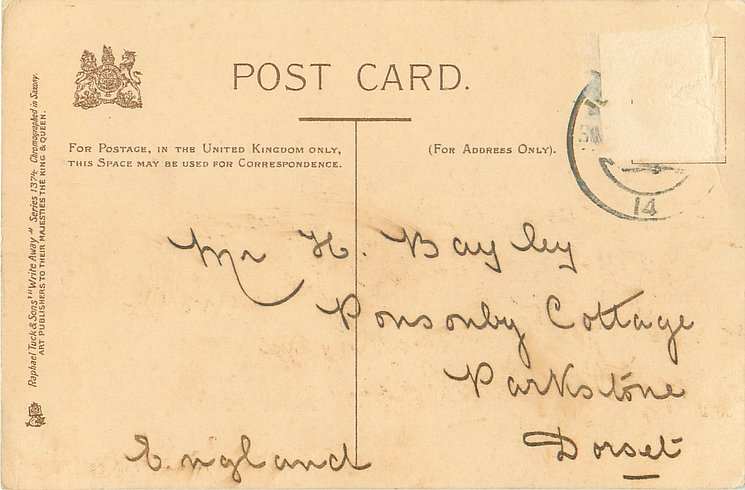 POST CARD.
FOR POSTAGE, IN THE UNITED KINGDOM ONLY,
THIS SPACE MAY BE USED FOR CORRESPONDENCE.
(FOR ADDRESS ONLY).
14
Mr H. Bayley
Ponsonby Cottage
Parkstone
Dorset
England
Raphael Tuck & Sons' "Write Away" Series 1374 Chromographed in Saxony.
ART PUBLISHERS TO THEIR MAJESTIES THE KING & QUEEN.